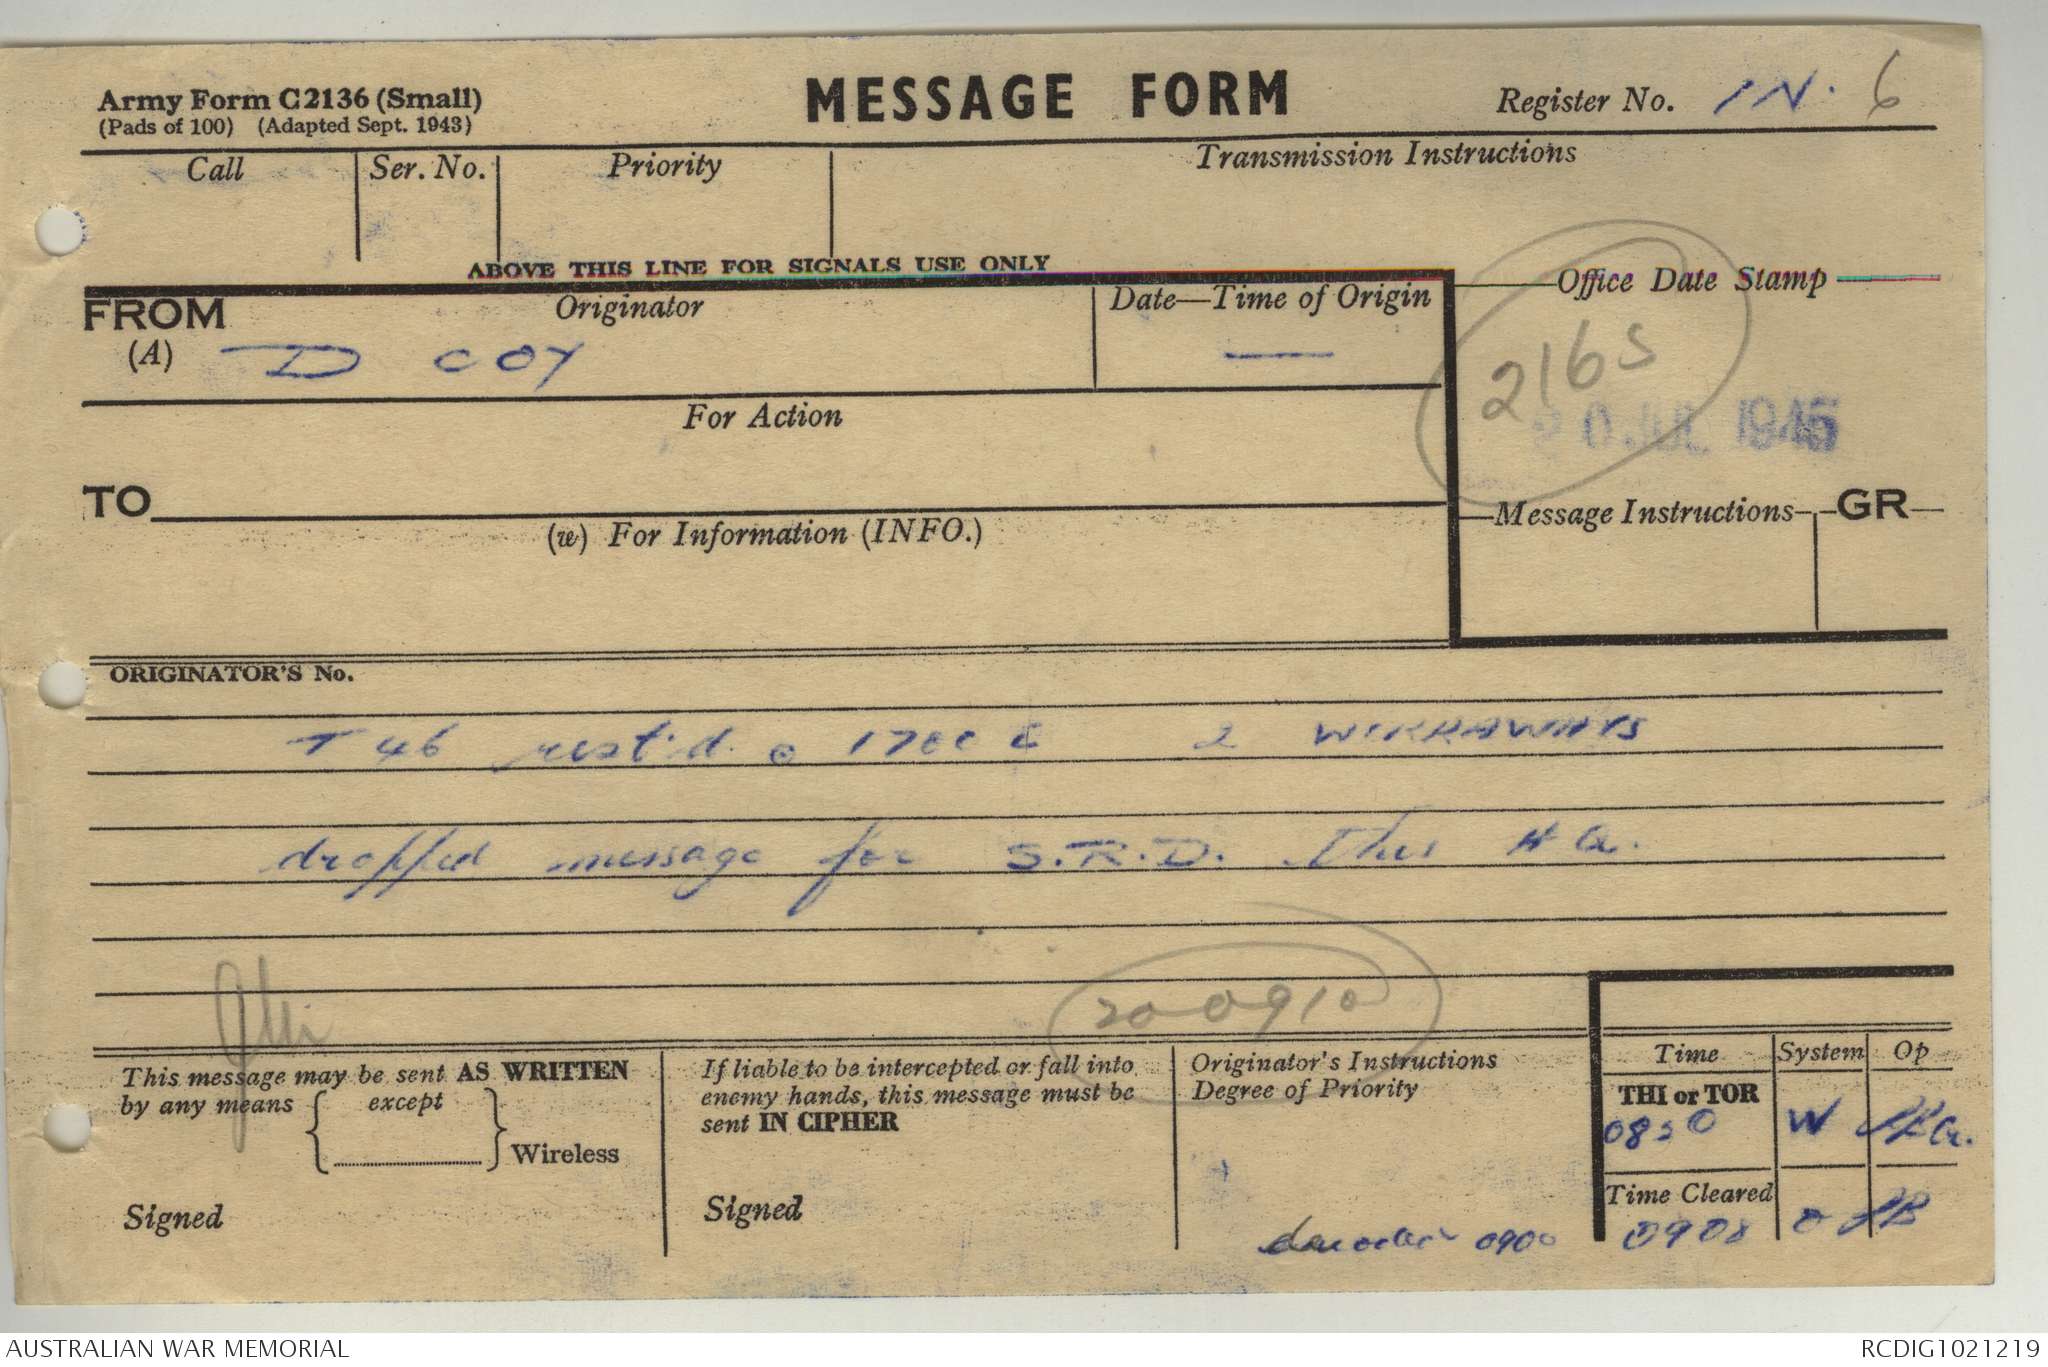 Army Form C2136 (Small)
(Pads of 100) (Adapted Sept. 1943)
MESSAGE FORM
Register No. IN. 6
Call
Ser. No.
Priority
Transmission Instructions
ABOVE THIS LINE FOR SIGNALS USE ONLY
FROM
(A)
Originator
D COY
Date—Time of Origin
—
Office Date Stamp
2165
20 JUL 1945
For Action
TO
(w) For Information (INFO.)
Message Instructions
GR
ORIGINATOR'S No.
T 46 rest'd @ 2 WIRRAWAYS
dropped message for S.R.D. this HQ.
200910
This message may be sent AS WRITTEN
by any means { except } Wireless
Signed
If liable to be intercepted or fall into
enemy hands, this message must be
sent IN CIPHER
Signed
Originator's Instructions
Degree of Priority
decoded 0900
Time System Op
THI or TOR
0820 W
Time Cleared
0908 JB
AUSTRALIAN WAR MEMORIAL
RCDIG1021219